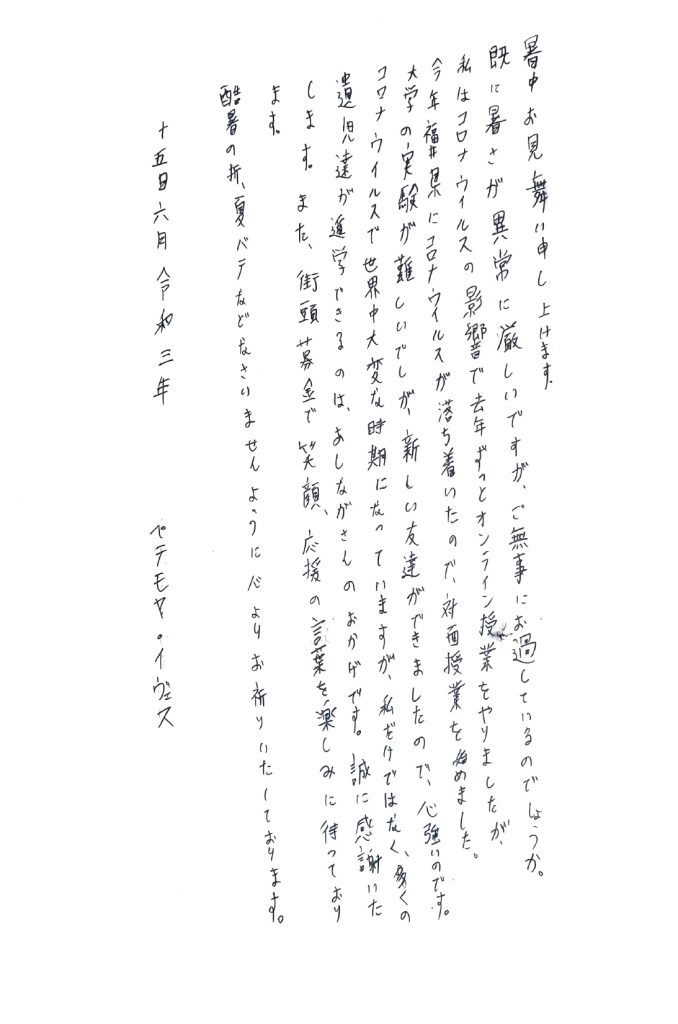 暑中お見舞い申し上げます。
既に暑さが異常に厳しいですが、ご無事にお過しているのでしょうか。
私はコロナウイルスの影響で去年ずっとオンライン授業をやりましたが、
今年福井県にコロナウイルスが落ち着いたので、対面授業を始めました。
大学の実験が難しいでしが、新しい友達ができましたので、心強いのです。
コロナウイルスで世界中大変な時期になっていますが、私だけではなく、多くの
遺児達が進学できるのは、あしながさんのおかげです。誠に感謝いた
します。また、街頭募金で笑顔、応援の言葉を楽しみに待っており
ます。
酷暑の折、夏バテなどなさいませんように心よりお祈りいたしております。
十五日六月令和三年
ペテモヤ・イヴェス